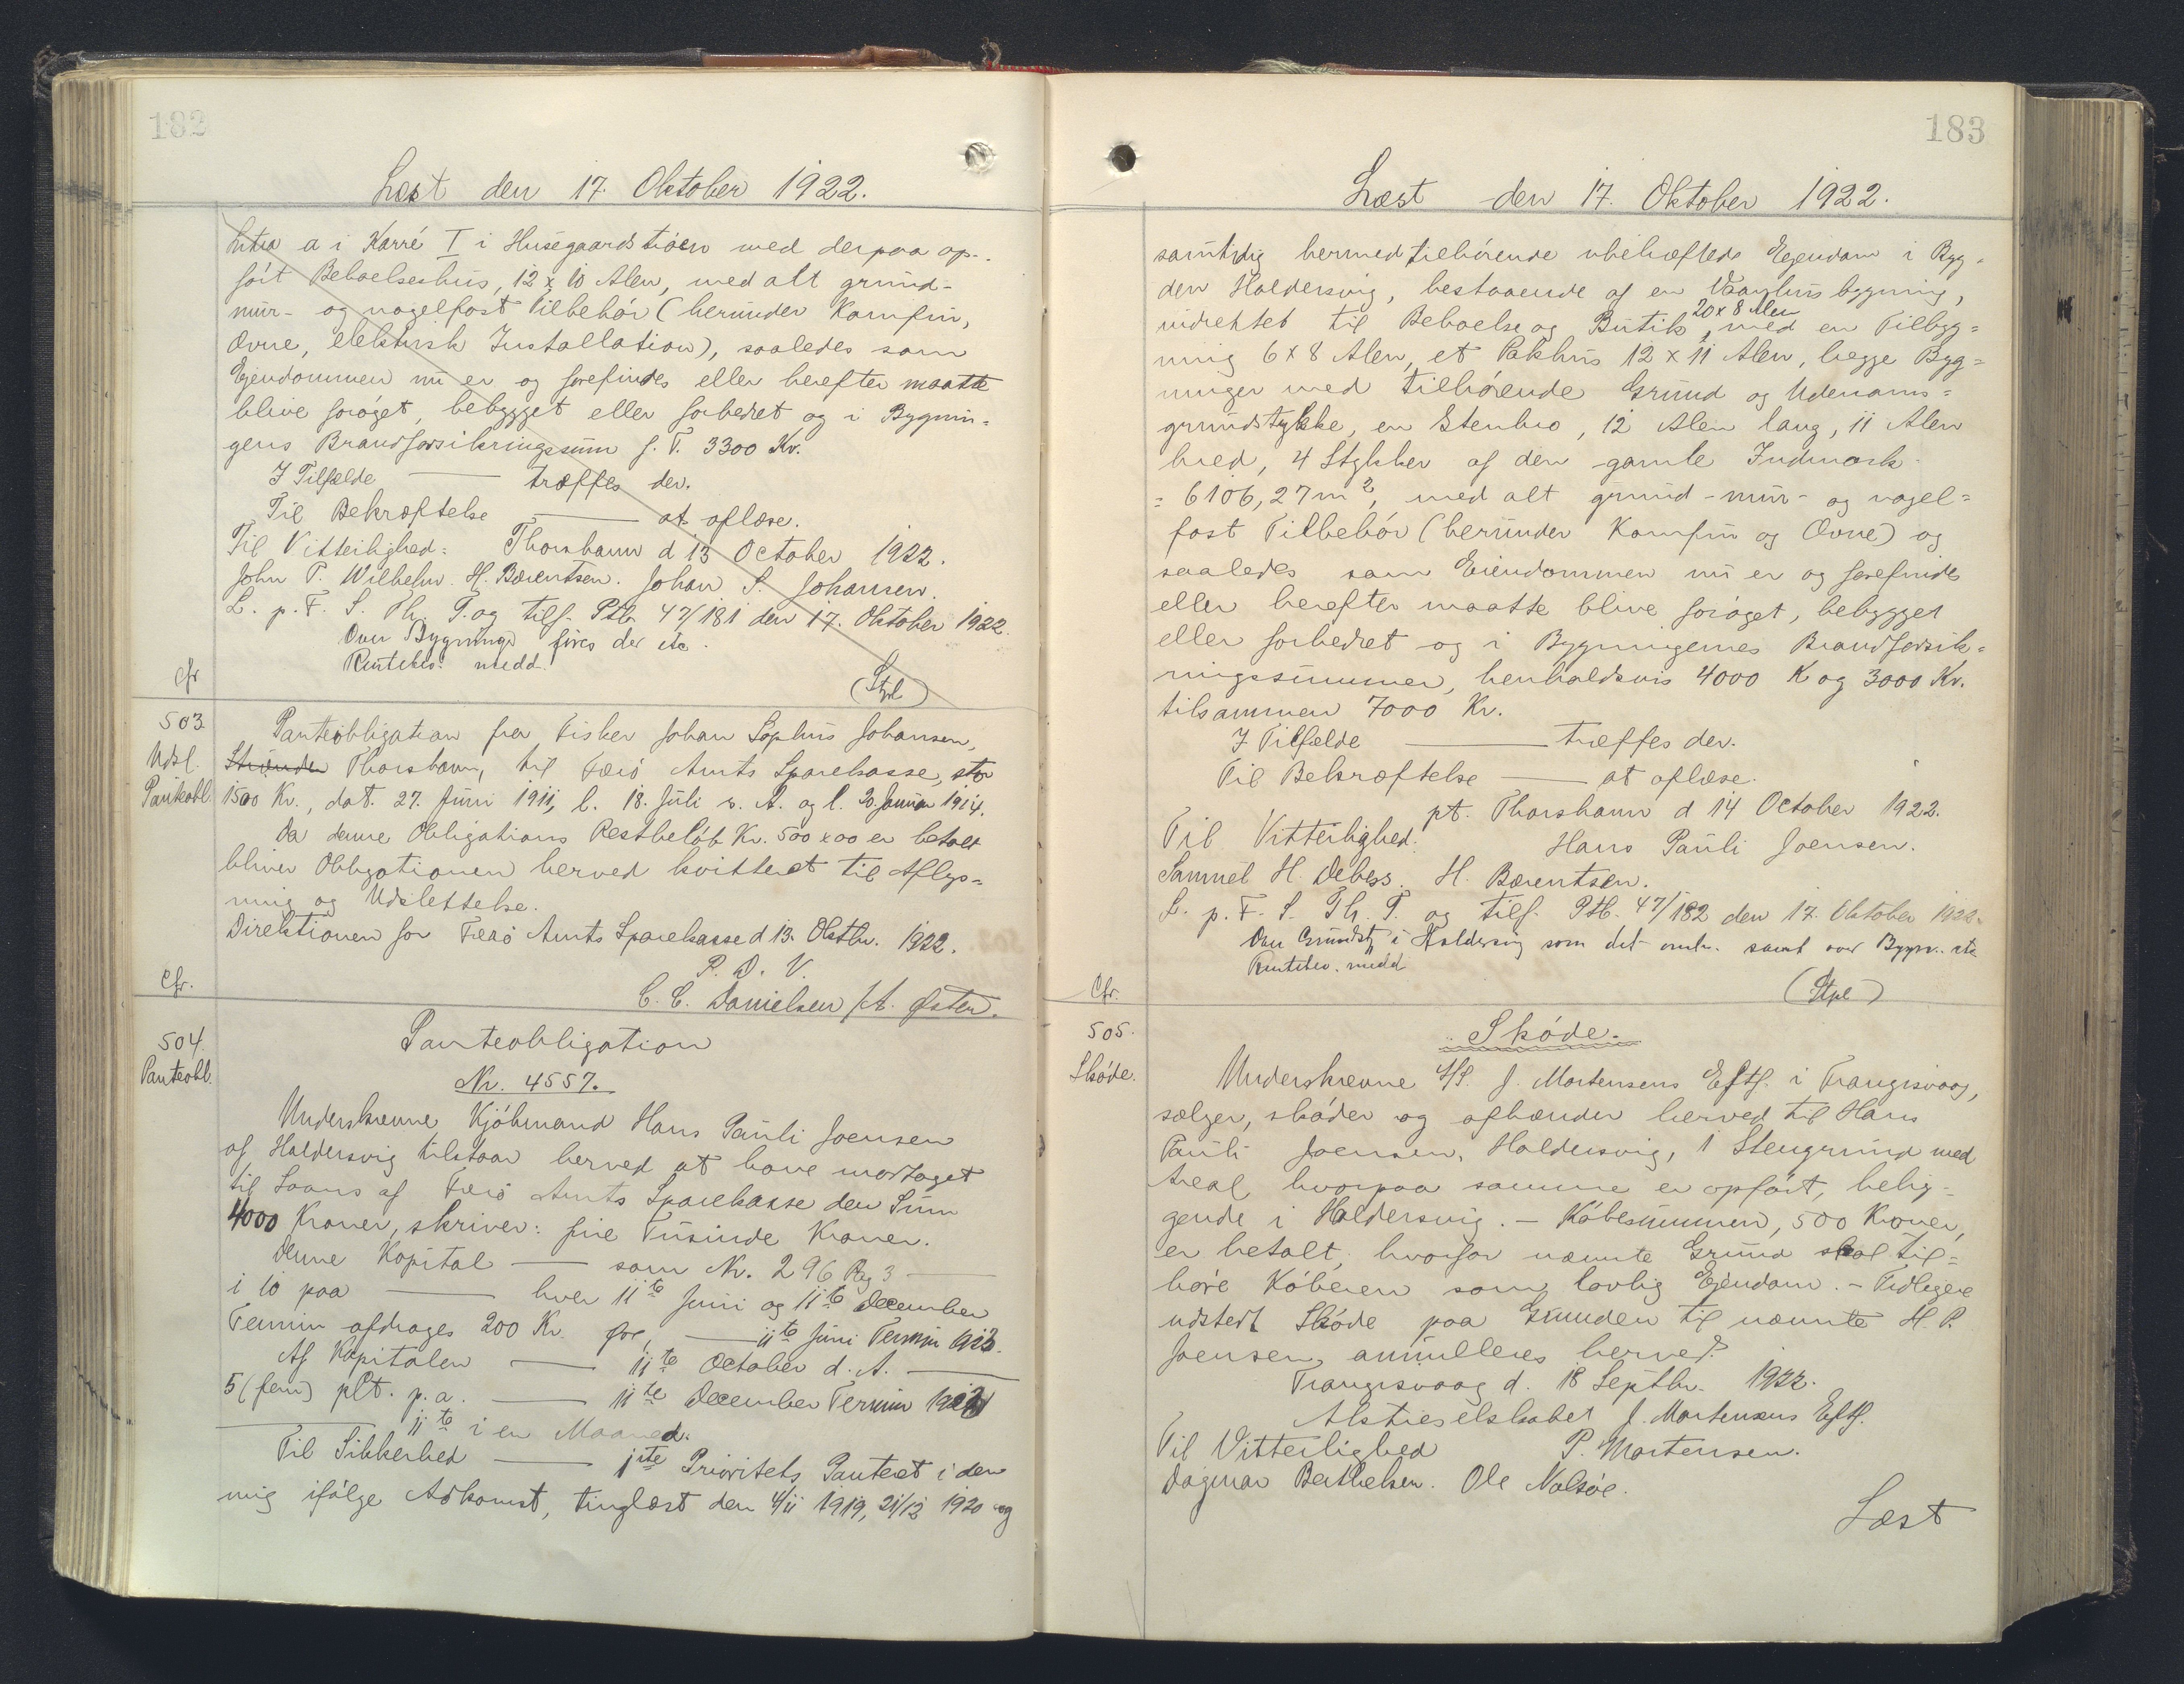 182
Læst den 17. Oktober 1922.
Litra a i Karré I i Husegaardstrøen med derpaa op-
ført Beboelseshus, 12 x 10 Alen, med alt grund-
mur- og nagelfast Tilbehør (herunder Komfur,
Ovne, elektrisk Installation), saaledes som
Ejendommen nu er og forefindes eller herefter maatte
blive forøget, bebygget eller forbedret og i Bygnin=
gens Brandforsikringssum f. T. 3300 Kr.
I Tilfælde — træffes der.
Til Bekræftelse — at aflæse.
Til Vitterlighed: Thorshavn d 13 October 1922.
John P. Wilhelm. H. Bærentsen. Johan S. Johansen.
L. p. F. S. Th. T. og tilf. Ptb. 47/181 den 17. Oktober 1922.
Over Bygninge føres der etc.
Rentebest. medd.
cfr
(Stpl)
503
Udsl.
Panteobl.
Panteobligation fra Fisker Johan Sophus Johansen,
Strænder Thorshavn, til Færø Amts Sparekasse, stor
1500 Kr., dat. 27. Juni 1911, l. 18. Juli s. A. og l. 20. Januar 1914.
Da denne Obligations Restbeløb Kr. 500 x 00 er betalt
bliver Obligationen herved kvitteret til Aflys=
ning og Udslettelse.
Direktionen for Færø Amts Sparekasse d 13. Oktbr. 1922.
P. D. V.
cfr.
C. C. Danielsen / A. Østen.
504.
Panteobl.
Panteobligation
Nr. 4557.
Underskrevne Kjøbmand Hans Pauli Joensen
af Haldersvig tilstaar herved at have modtaget
til Laans af Færø Amts Sparekasse den Sum
4000 Kroner, skriver: fire Tusinde Kroner.
Denne Kapital — som Nr. 296 Pag 3 —
i 10 paa — hver 11te Juni og 11te December
Termin afdrages 200 Kr. før, — 11te Juni Termin 1923.
Af Kapitalen — 11te October d. A. —
5 (fem) pCt. p. a. — 11te December Termin 1922
— 11te i en Maaned.
Til Sikkerhed — 1ste Prioritets Panteret i den
mig ifølge Adkomst, tinglæst den 4/11 1919, 21/12 1920 og
183
Læst den 17. Oktober 1922.
samtidig hermed tilhørende ubehæftede Ejendom i Byg=
den Haldersvig, bestaaende af en Vaanhusbygning,
20 x 8 Alen
indrettet til Beboelse og Butik, med en Tilbyg=
ning 6 x 8 Alen, et Pakhus 12 x 11 Alen, begge Byg=
ninger med tilhørende Grund og Udenoms=
grundstykke, en Stenbro, 12 Alen lang, 11 Alen
bred, 4 Stykker af den gamle Indmark
= 6106,27 m2, med alt grund- mur- og nagel=
fast Tilbehør (herunder Komfur og Ovne) og
saaledes som Eiendommen nu er og forefindes
eller herefter maatte blive forøget, bebygget
eller forbedret og i Bygningernes Brandforsik=
ringssummer, henholdsvis 4000 K og 3000 Kr.
tilsammen 7000 Kr.
I Tilfælde — træffes der.
Til Bekræftelse — at aflæse.
pt. Thorshavn d 14 October 1922.
Til Vitterlighed: Hans Pauli Joensen.
Samuel H. Debess. H. Bærentsen.
L. p. F. S. Th. T. og tilf. Ptb. 47/182 den 17. Oktober 1922.
Over Grundst. i Haldersvig som det omh. samt over Bygn. etc
Rentebev. medd
Cfr.
(Stpl)
505.
Skøde.
Skøde.
Underskrevne A/S. J. Mortensens Eftf. i Trangisvaag,
sælger, skøder og afhænder herved til Hans
Pauli Joensen, Haldersvig, 1 Stengrund med
Areal hvorpaa samme er opført, belig-
gende i Haldersvig. — Købesummen, 500 Kroner,
er betalt, hvorfor nævnte Grund skal til=
høre Køberen som lovlig Ejendom. — Tidligere
udstedt Skøde paa Grunden til nævnte H. P.
Joensen, annulleres herved.
Trangisvaag d. 18 Septbr. 1922.
Aktieselskabet J. Mortensens Eftf.
Til Vitterlighed P. Mortensen.
Dagmar Berthelsen. Ole Nolsøe.
Læst